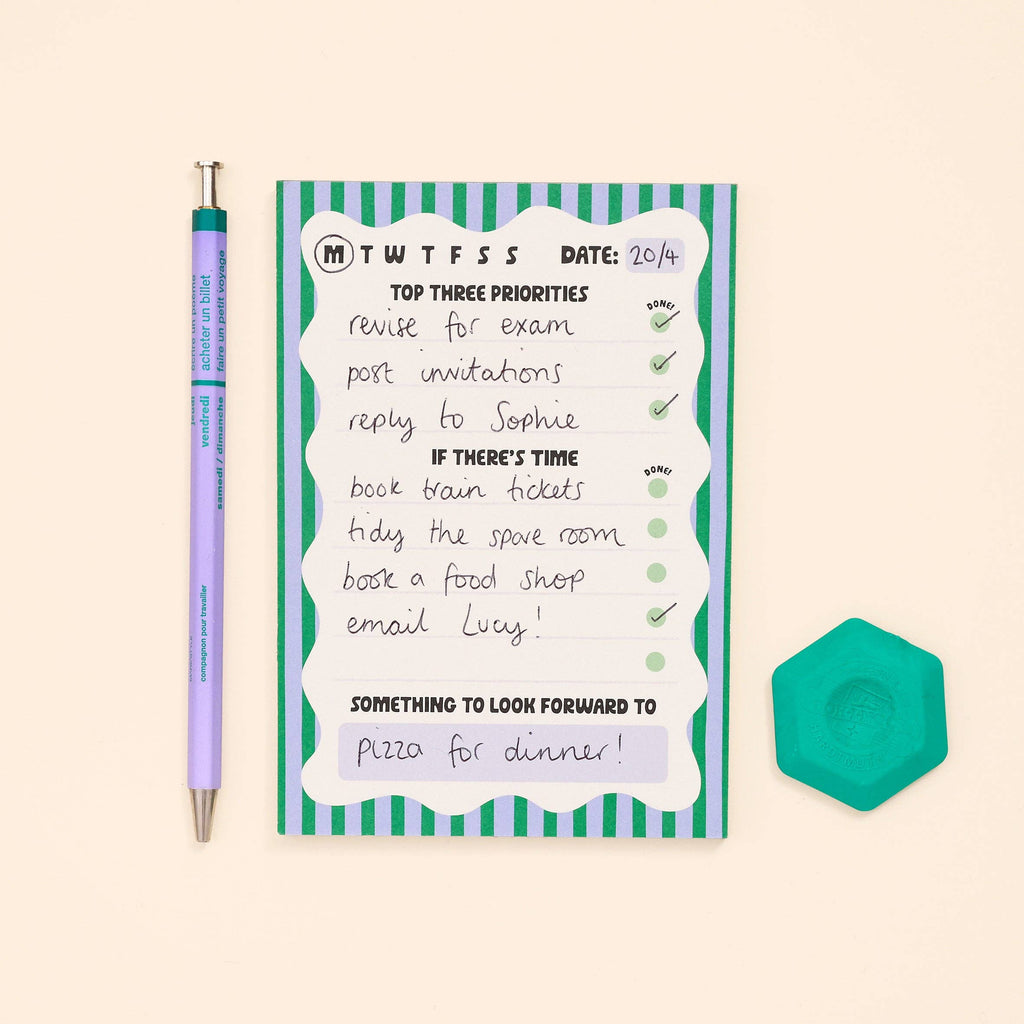 M T W T F S S DATE: 20/4
TOP THREE PRIORITIES
DONE!
revise for exam
post invitations
reply to Sophie
IF THERE'S TIME
DONE!
book train tickets
tidy the spare room
book a food shop
email Lucy!
SOMETHING TO LOOK FORWARD TO
pizza for dinner!
acheter un billet
faire un petit voyage
jeudi
vendredi
samedi / dimanche
compagnon pour travailler